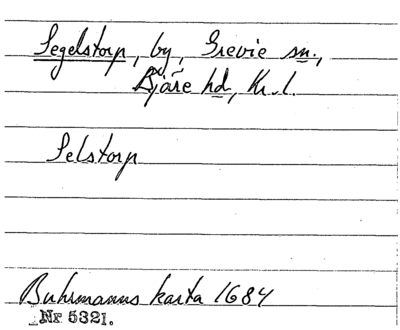 Segelstorp, by, Grevie sn.,
Bjäre hd, Kr. l.
Selstorp
Buhrmanns karta 1684
Nr 5321.